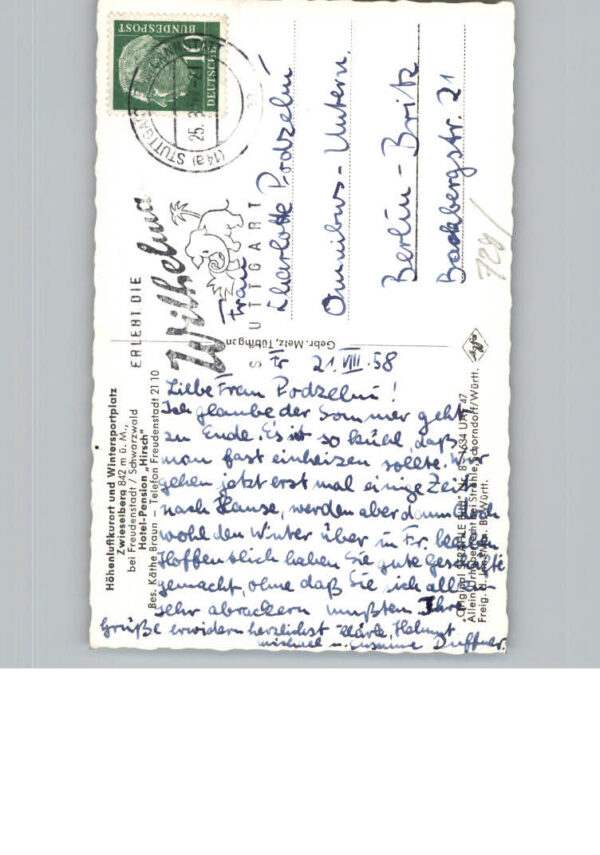 10
DEUTSCHE
BUNDESPOST
(14a) STUTTGART
25.
ERLEBT DIE
Wilhelma
STUTTGART
Frau
Charlotte Podzelni
Omnibus-Untern.
Berlin-Britz
Backbergstr. 21
728/
Gebr. Metz, Tübingen
Höhenluftkurort und Wintersportplatz
Zwieselberg 842 m ü. M.,
bei Freudenstadt / Schwarzwald
Hotel-Pension „Hirsch"
Bes. Käthe Braun - Telefon Freudenstadt 21 10
Fr 21. VIII. 58
Liebe Frau Podzelni!
Ich glaube der Sommer geht
zu Ende. Es ist so kühl, daß
man fast einheizen sollte. Wir
gehen jetzt erst mal einige Zeit
nach Hause, werden aber dann doch
wohl den Winter über in Fr.
Hoffentlich haben Sie gute Geschäfte
gemacht, ohne daß Sie sich allzu
sehr abrackern mußten. Ihre
Grüße erwidern herzlichst Helmut
Michael u. Susanne Duffner.
Strähle, Schorndorf/Württ.